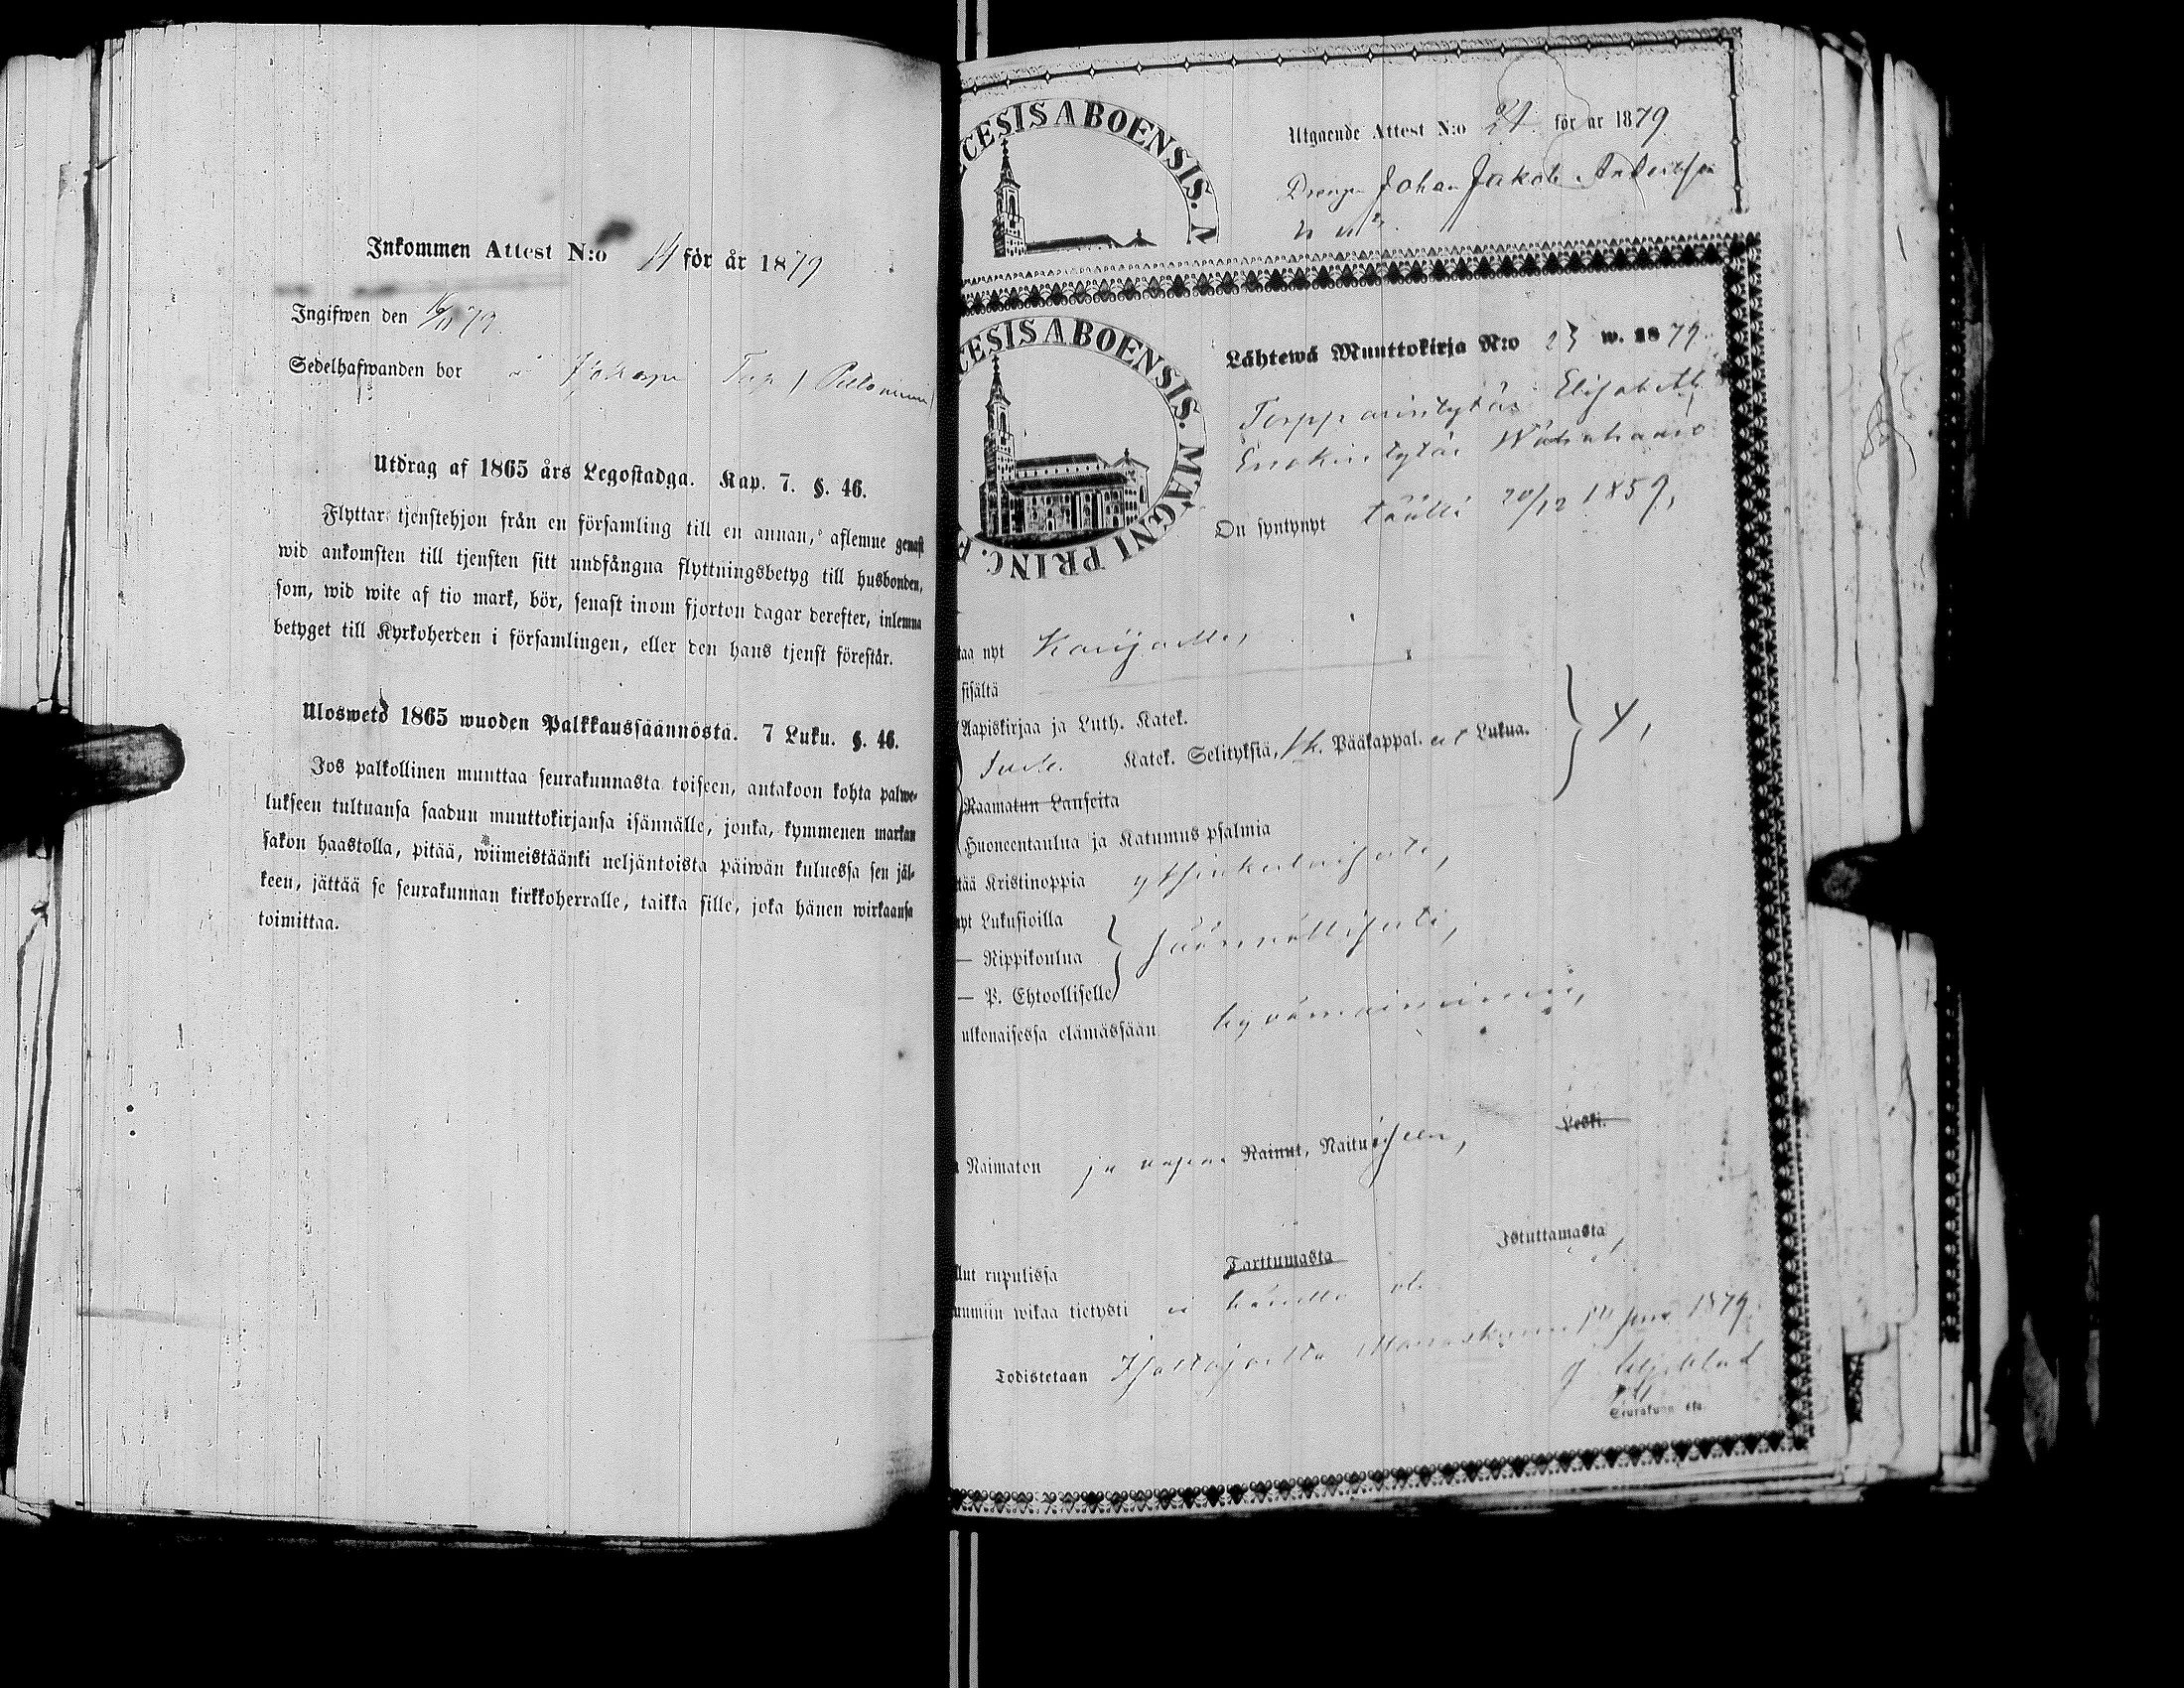 Inkommen Attest N:o 14 för år 1879
Ingifwen den 16/11 79.
Sedelhafwanden bor å
Utdrag af 1865 års Legostadga. Kap. 7. §. 46.
Flyttar tjenstehjon från en församling till en annan, aflemne genast
wid ankomsten till tjensten sitt undfångna flyttningsbetyg till husbonden,
som, wid wite af tio mark, bör, senast inom fjorton dagar derefter, inlemna
betyget till Kyrkoherden i församlingen, eller den hans tjenst förestår.
Ulosweto 1865 wuoden Palkkaussäännöstä. 7 Luku. §. 46.
Jos palkollinen muuttaa seurakunnasta toiseen, antakoon kohta palwe-
lukseen tultuansa saadun muuttokirjansa isännälle, jonka, kymmenen markan
sakon haastolla, pitää, wiimeistäänki neljäntoista päiwän kuluessa sen jäl-
keen, jättää se seurakunnan kirkkoherralle, taikka sille, joka hänen wirkaansa
toimittaa.
CESIS ABOENSIS. M
Utgaende Attest N:o 24. för ar 1879
Drengen Johan Jakob Andersson
CESIS ABOENSIS. MAGNI PRINC. F
Lähtewä Muuttokirja N:o 23 w. 1879.
Torpparintytär Elisabeth
Enokintytär
On syntynyt täällä 20/12 1859,
taa nyt Karijoelle,
sisältä
Aapiskirjaa ja Luth. Katek.
Katek. Selityksiä, Pääkappal. Lukua. } y,
Raamatun Lauseita
Huoneentaulua ja Katumus psalmia
tää Kristinoppia yksinkertaisesti,
nyt Lukusioilla
— Rippikoulua } säännöllisesti,
— P. Ehtoolliselle
ulkonaisessa elämässään hyvämaineinen,
Naimaton ja vapaa Nainut, Naituiseen, Leski.
llut rupulissa Tarttumasta Istuttamasta
uumiin wikaa tietysti ei hänellä ole
Todistetaan 1879.
Seurakunn